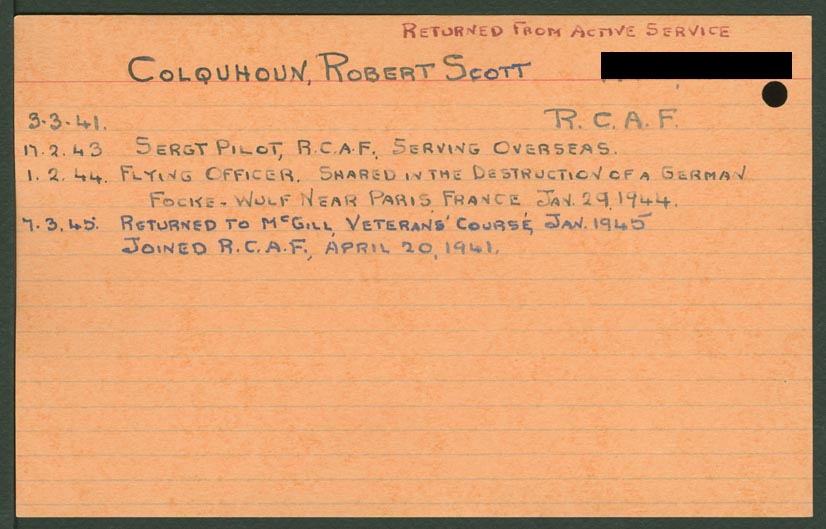 RETURNED FROM ACTIVE SERVICE
COLQUHOUN, ROBERT SCOTT
3.3.41. R.C.A.F.
17.2.43 SERGT PILOT, R.C.A.F., SERVING OVERSEAS.
1.2.44. FLYING OFFICER. SHARED IN THE DESTRUCTION OF A GERMAN
FOCKE-WULF NEAR PARIS FRANCE JAN. 29, 1944.
7.3.45. RETURNED TO McGILL, VETERANS' COURSE, JAN. 1945
JOINED R.C.A.F., APRIL 20, 1941.